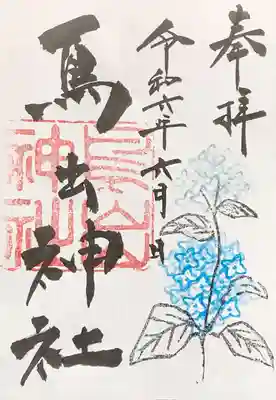 奉拝
令和六年六月日
鳥出神社
鳥出
神社